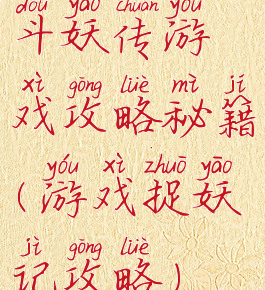 dòu yāo chuán yóu
斗妖传游
xì gōng lüè mì jí
戏攻略秘籍
yóu xì zhuō yāo
(游戏捉妖
jì gōng lüè
记攻略)